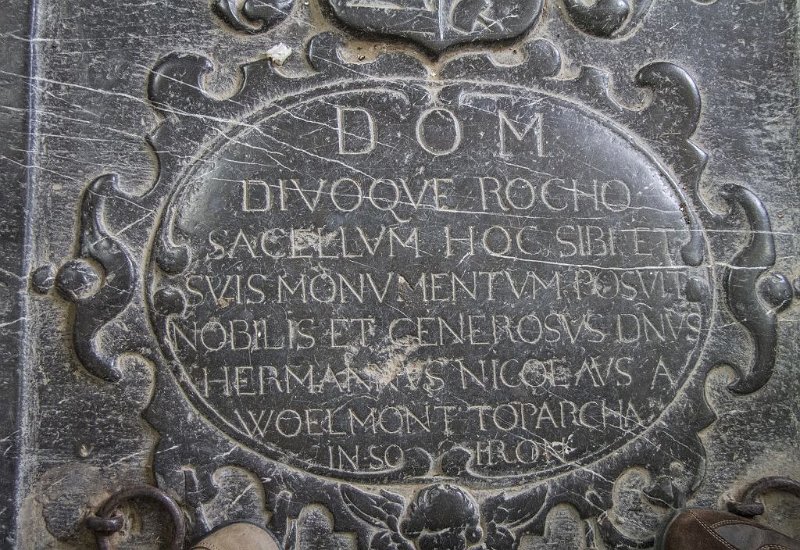 D O M
DIVOQVE ROCHO
SACELLVM HOC SIBI ET
SVIS MONVMENTVM POSVIT
NOBILIS ET GENEROSVS DÑVS
HERMANNVS NICOLAVS A
WOELMONT TOPARCHA
IN SO